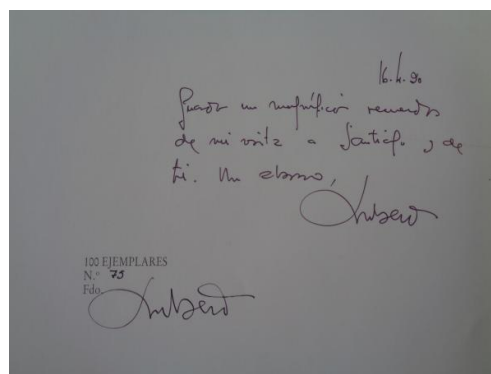 16.X.90
Guardo un magnífico recuerdo
de mi visita a Santiago y de
ti. Un abrazo,
100 EJEMPLARES
N.º 73
Fdo.